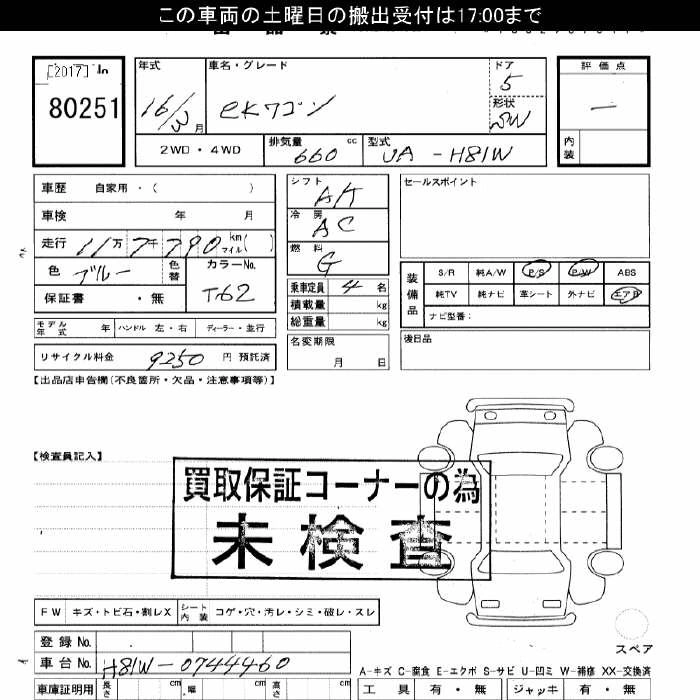 この車両の土曜日の搬出受付は17:00まで
[2017]
80251
年式
16/3月
車名・グレード
eKワゴン
ドア
5
形状
SW
評価点
―
内装
2WD・4WD
排気量 660 cc
型式 UA-H81W
車歴 自家用・( )
車検 年 月
走行 11万7千790 km マイル( )
色 ブルー 色替
カラーNo. T62
保証書 ・無
シフト AT
冷房 AC
燃料 G
乗車定員 4 名
積載量 kg
総重量 kg
モデル年式 年 ハンドル 左・右 ディーラー・並行
名変期限 月 日
リサイクル料金 9250 円 預託済
セールスポイント
装備品
S/R 純A/W P/S P/W ABS
純TV 純ナビ 革シート 外ナビ エアB
ナビ型番:
後日品
【出品店申告欄(不良箇所・欠品・注意事項等)】
【検査員記入】
買取保証コーナーの為
未検査
FW キズ・トビ石・割レX シート内装 コゲ・穴・汚レ・シミ・破レ・スレ
スペア
登録No.
車台No. H81W-0744460
車庫証明用 長さ cm 幅 cm 高さ cm
A-キズ C-腐食 E-エクボ S-サビ U-凹ミ W-補修 XX-交換済
工具 有・無 ジャッキ 有・無